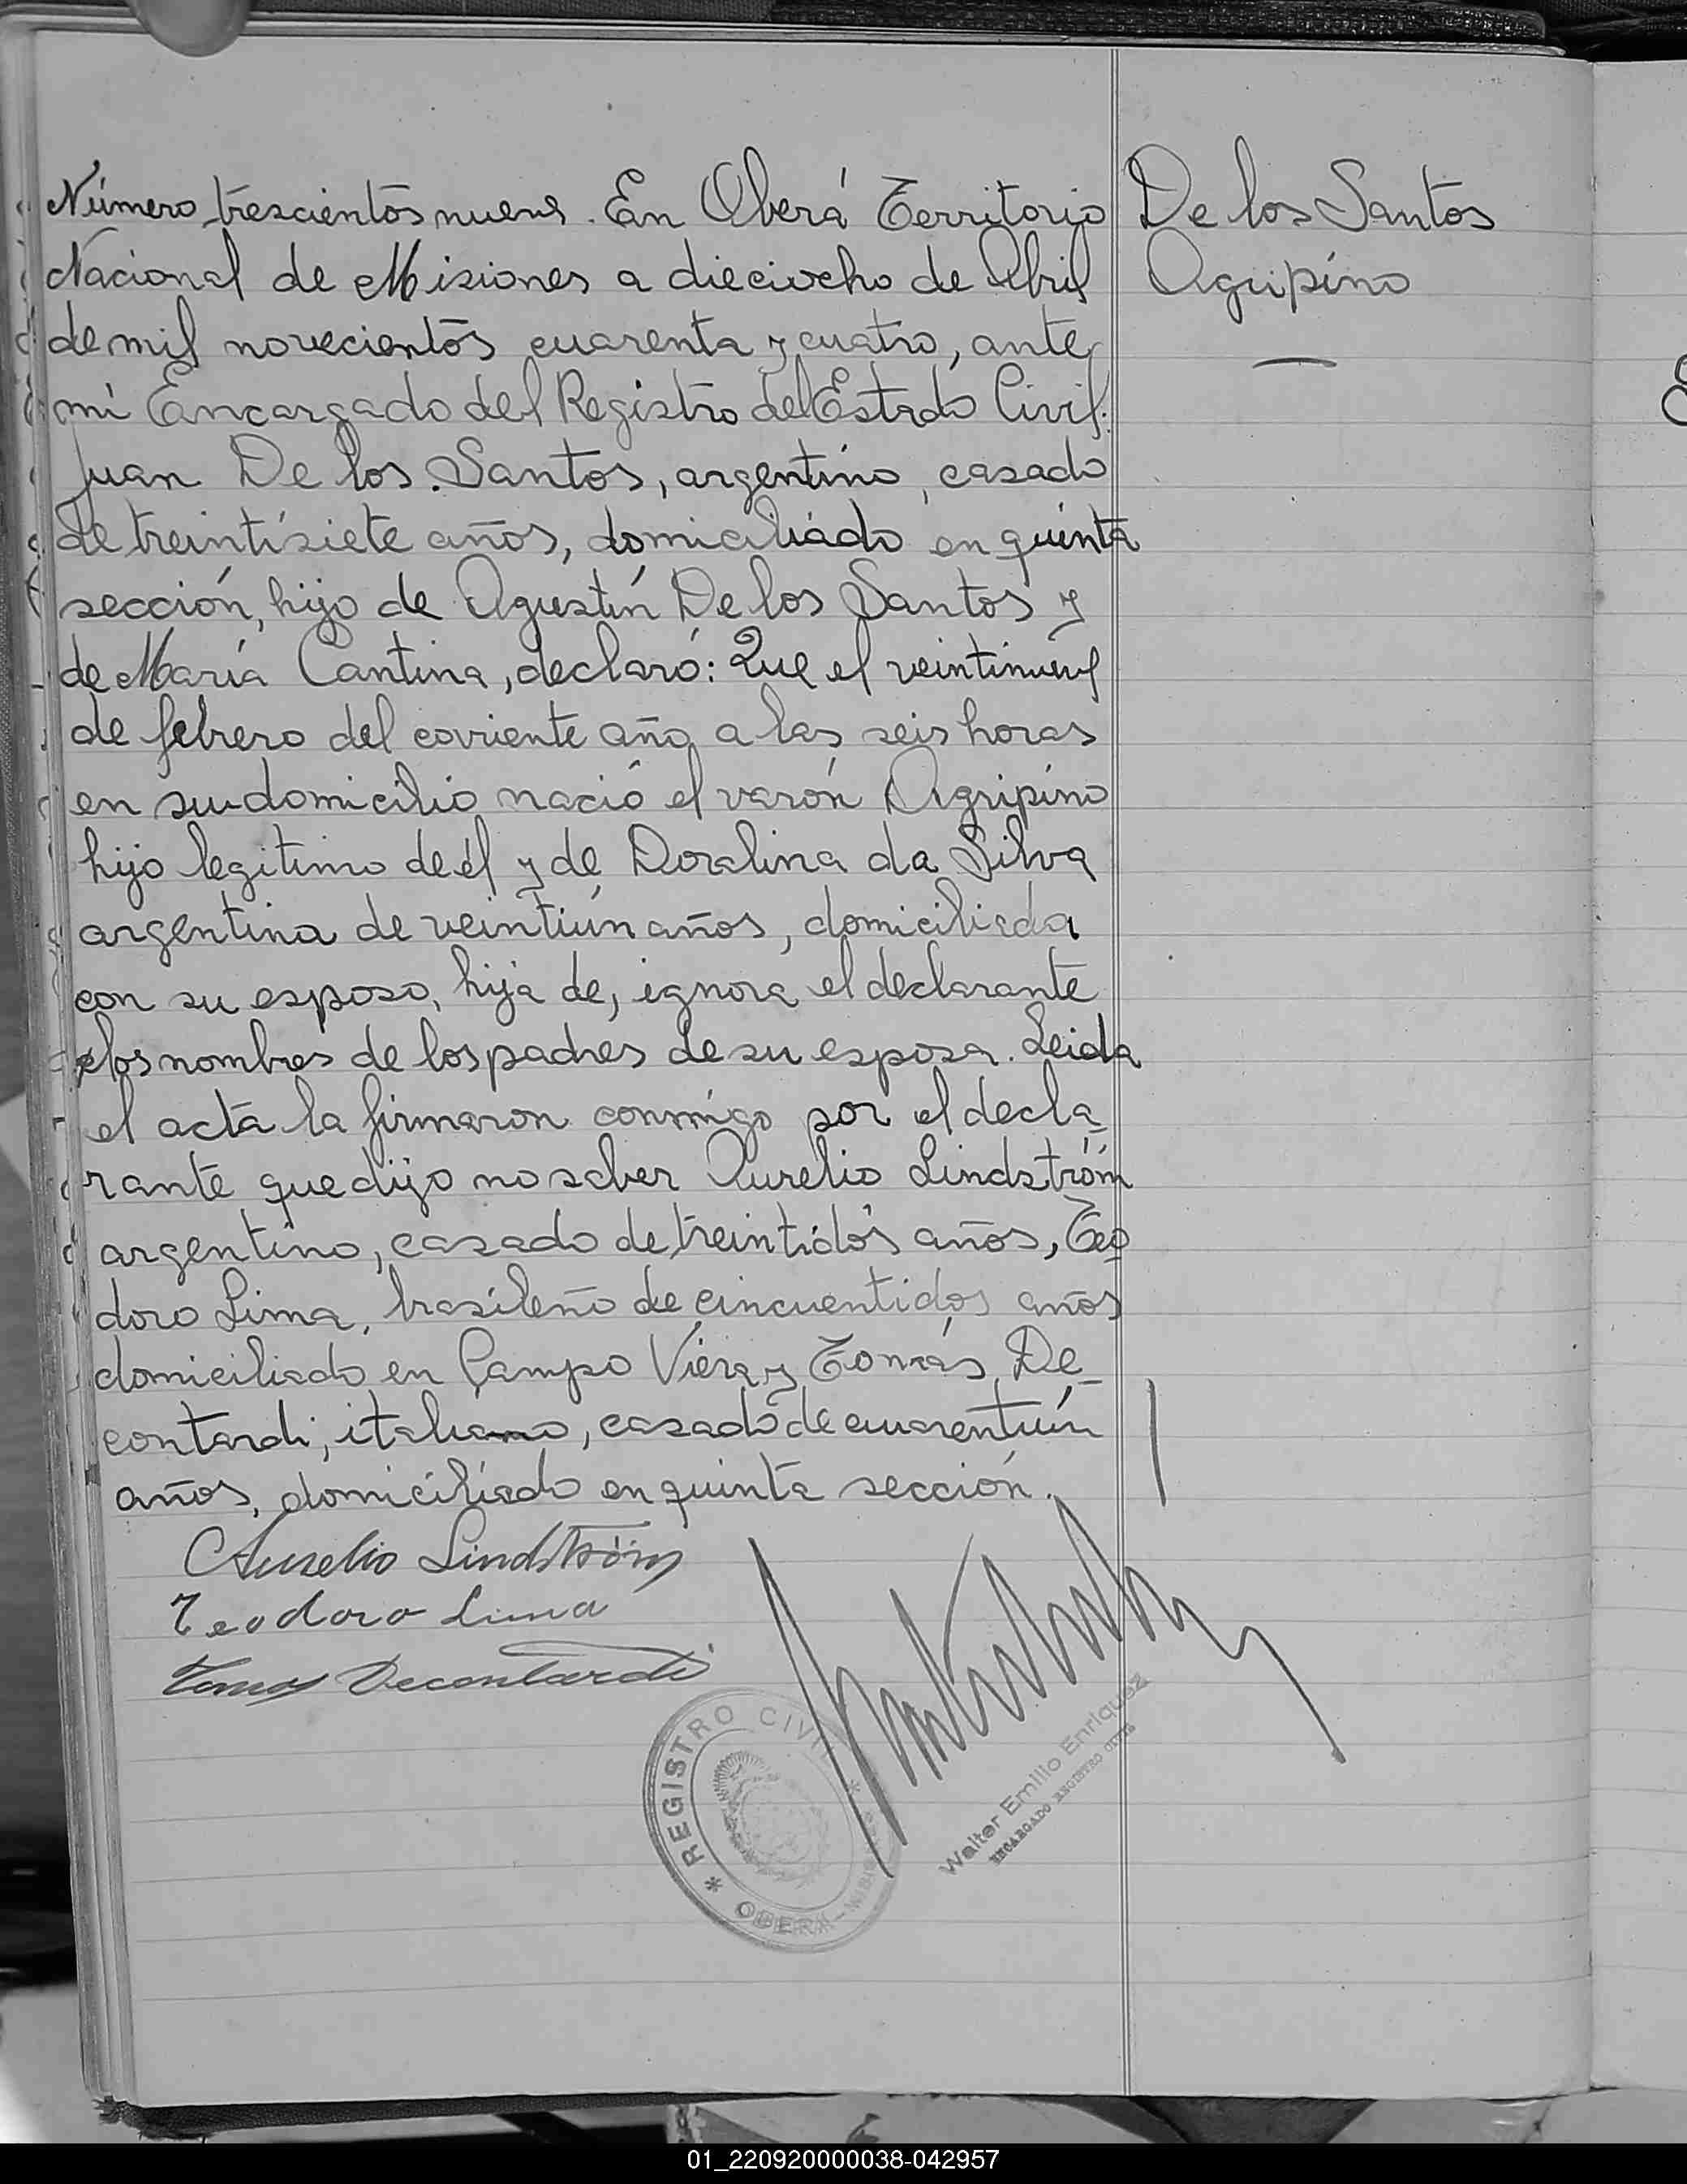 Número trescientos nueve. En Oberá Territorio
Nacional de Misiones a dieciocho de Abril
de mil novecientos cuarenta y cuatro, ante
mí Encargado del Registro del Estado Civil:
Juan De los Santos, argentino, casado
de treintisiete años, domiciliado en quinta
sección, hijo de Agustín De los Santos y
de María Cantina, declaró: Que el veintinueve
de febrero del corriente año a las seis horas
en su domicilio nació el varón Agripino
hijo legitimo de él y de Doralina da Silva
argentina de veintiún años, domiciliada
con su esposo, hija de, ignora el declarante
los nombres de los padres de su esposa. Leida
el acta la firmaron conmigo por el decla
rante que dijo no saber Aurelio Lindström
argentino, casado de treintidós años, Teo
doro Lima, brasileño de cincuentidos años
domiciliado en Campo Viera y Tomás De
contardi, italiano, casado de cuarentiún
años, domiciliado en quinta sección.
De los Santos
Agripino
Aurelio Lindström
Teodoro Lima
Tomas Decontardi
* REGISTRO CIVIL *
OBERÁ - MISIONES
Walter Emilio Enriquez
ENCARGADO REGISTRO CIVIL
01_220920000038-042957